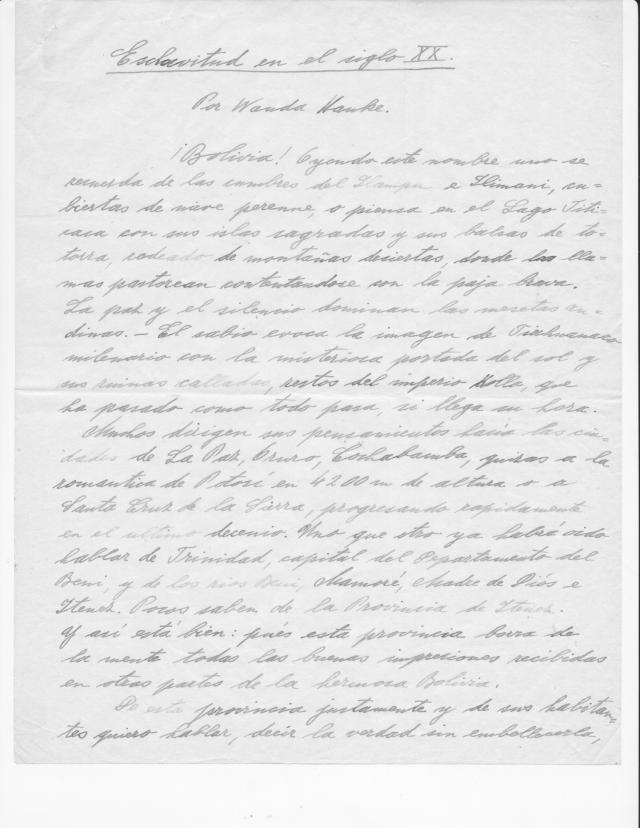 Esclavitud en el siglo XX.
Por Wanda Hanke.
¡Bolivia! Oyendo este nombre uno se
recuerda de las cumbres del Illampu e Illimani, cu-
biertas de nieve perenne, o piensa en el Lago Titi-
caca con sus islas sagradas y sus balsas de to-
torra, rodeado de montañas desiertas, donde las lla-
mas pastorean contentandose con la paja brava.
La paz y el silencio dominan las mesetas an-
dinas. — El sabio evoca la imagen de Tiahuanaco
milenario con la misteriosa portada del sol y
sus ruinas calladas, restos del imperio Kolla, que
ha pasado como todo pasa, si llega su hora.
Muchos dirigen sus pensamientos hacia las ciu-
dades de La Paz, Oruro, Cochabamba, quizas a la
romantica de Potosí en 4200 m de altura o a
Santa Cruz de la Sierra, progresando rapidamente
en el ultimo decenio. Uno que otro ya habrá oido
hablar de Trinidad, capital del Departamento del
Beni, y de los rios Beni, Mamoré, Madre de Diós e
Itenez. Pocos saben de la Provincia de Itenez.
Y así está bien: pués esta provincia borra de
la mente todas las buenas impresiones recibidas
en otras partes de la hermosa Bolivia.
De esta provincia justamente y de sus habitan-
tes quiero hablar, decir la verdad sin embellecerla,